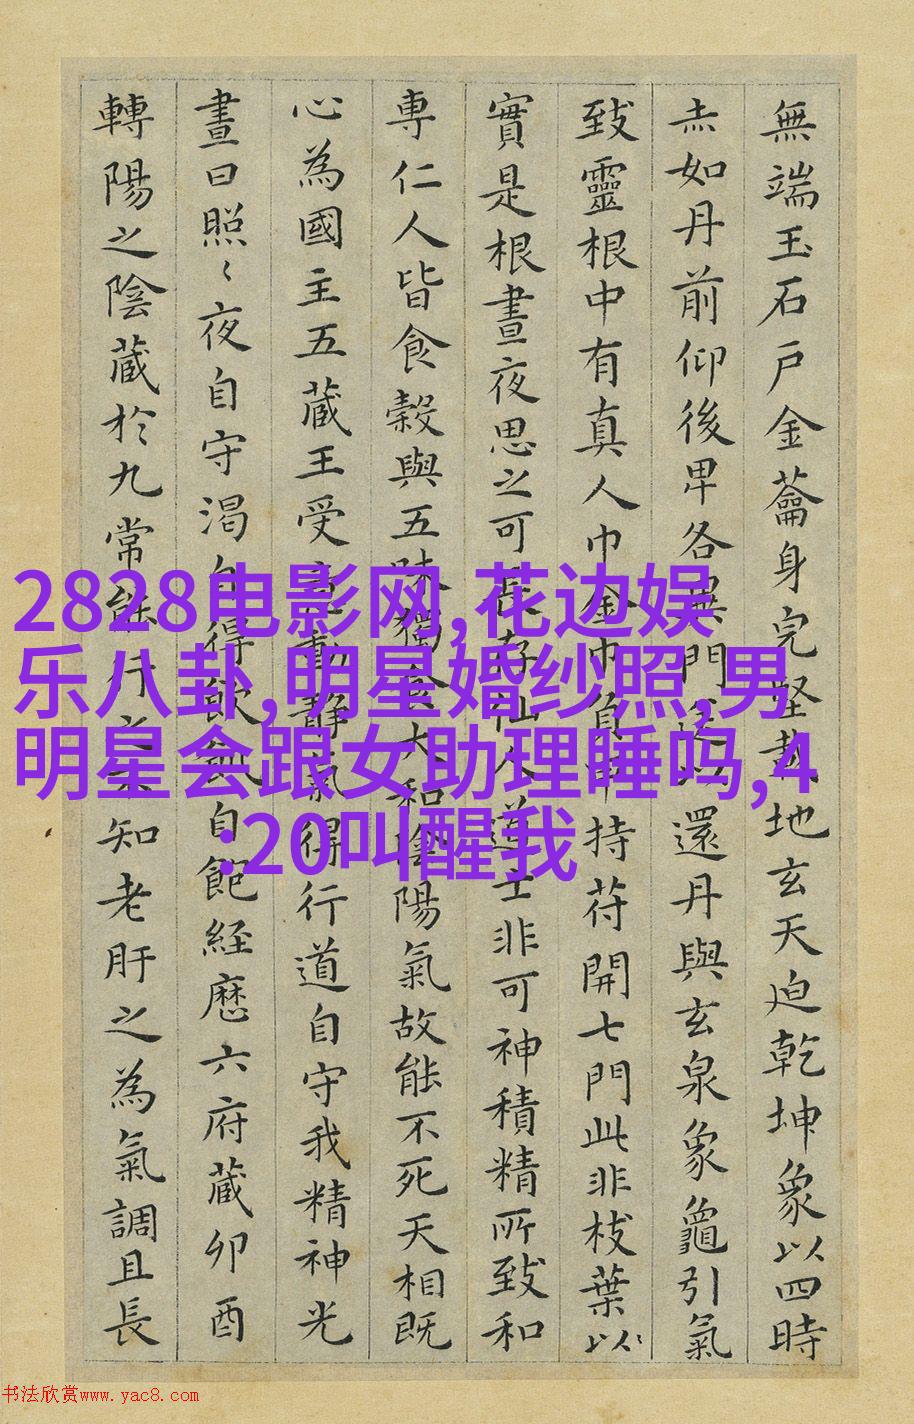 無端玉石戶金蘥身完堅載地玄天迫乾坤象以四時
赤如丹前仰後卑各異門送以還丹與玄泉象龜引氣
致靈根中有真人巾金巾負甲持苻開七門此非枝葉以
實是根晝夜思之可長存仙人道士非可神積精所致和
專仁人皆食穀與五味獨食大和陰陽氣故能不死天相既
心為國主五藏王受意動靜氣得行道自守我精神光
晝日照〻夜自守渴自得飲飢自飽経歷六府藏卯酉
轉陽之陰藏於九常能行之不知老肝之為氣調且長
2828电影网,花边娱
乐八卦,明星婚纱照,男
明星会跟女助理睡吗,4
:20叫醒我
书法欣赏www.yac8.com